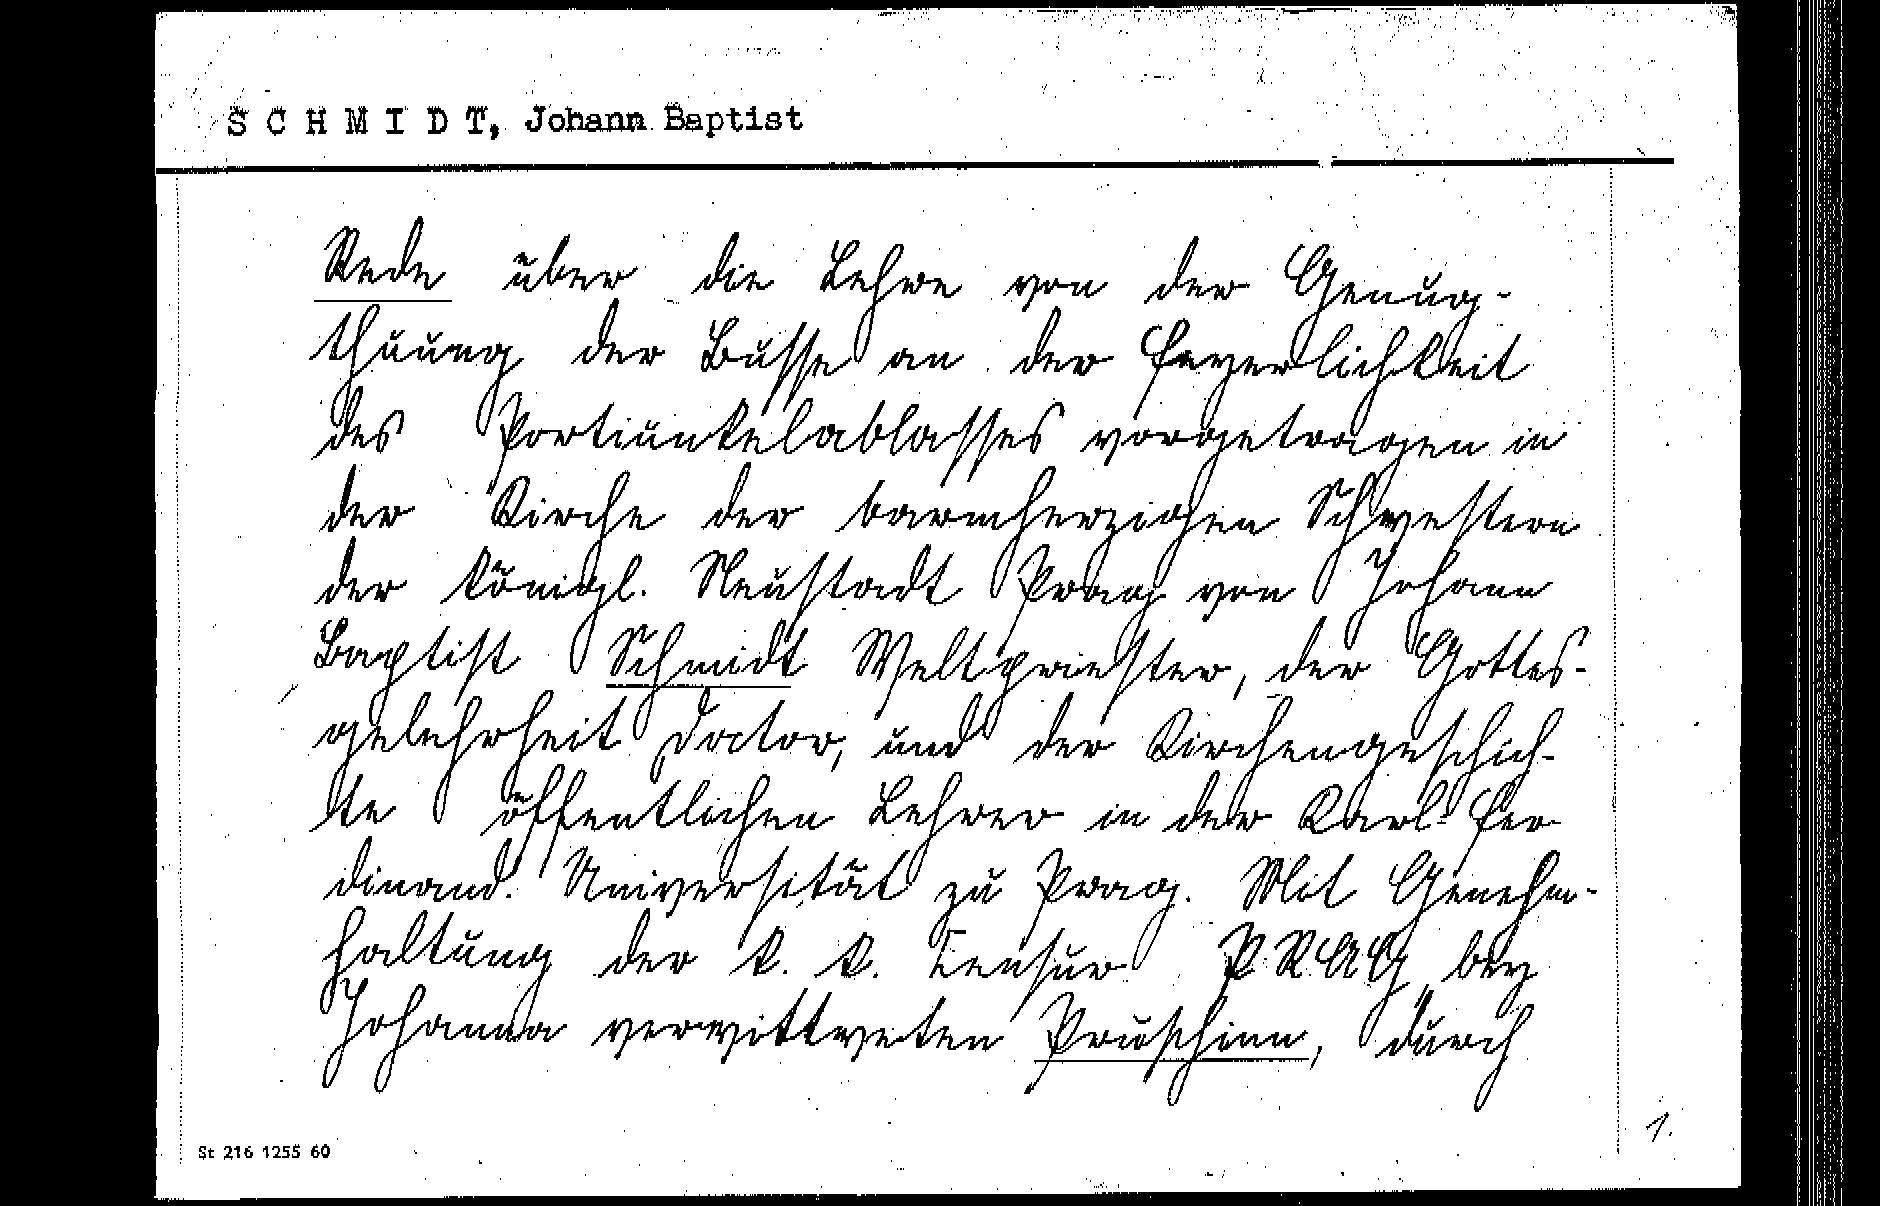 SCHMIDT, Johann Baptist
Rede über die Lehre von der Genug-
thuung der Busse an der Feyerlichkeit
des Portiunkelablasses vorgetragen in
der Kirche der barmherzigen Schwestern
der königl. Neustadt Prag von Johann
Baptist Schmidt Weltpriester, der Gottes-
gelehrheit Doctor, und der Kirchengeschich-
te öffentlichen Lehrer in der Karl-Fer-
dinand. Universität zu Prag. Mit Genehm-
haltung der k. k. Censur PRAG, bey
Johanna verwittweten Pruschinn, durch
1.
St 216 1255 60